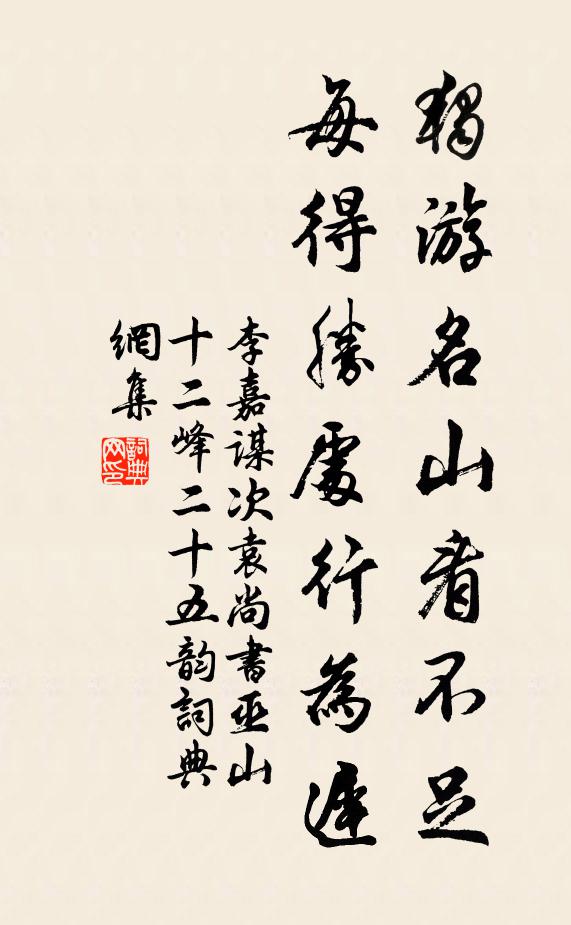 獨游名山看不足
每得勝處行為遲
李嘉謀次袁尚書巫山
十二峰二十五韵詞典
網集
詞典網印